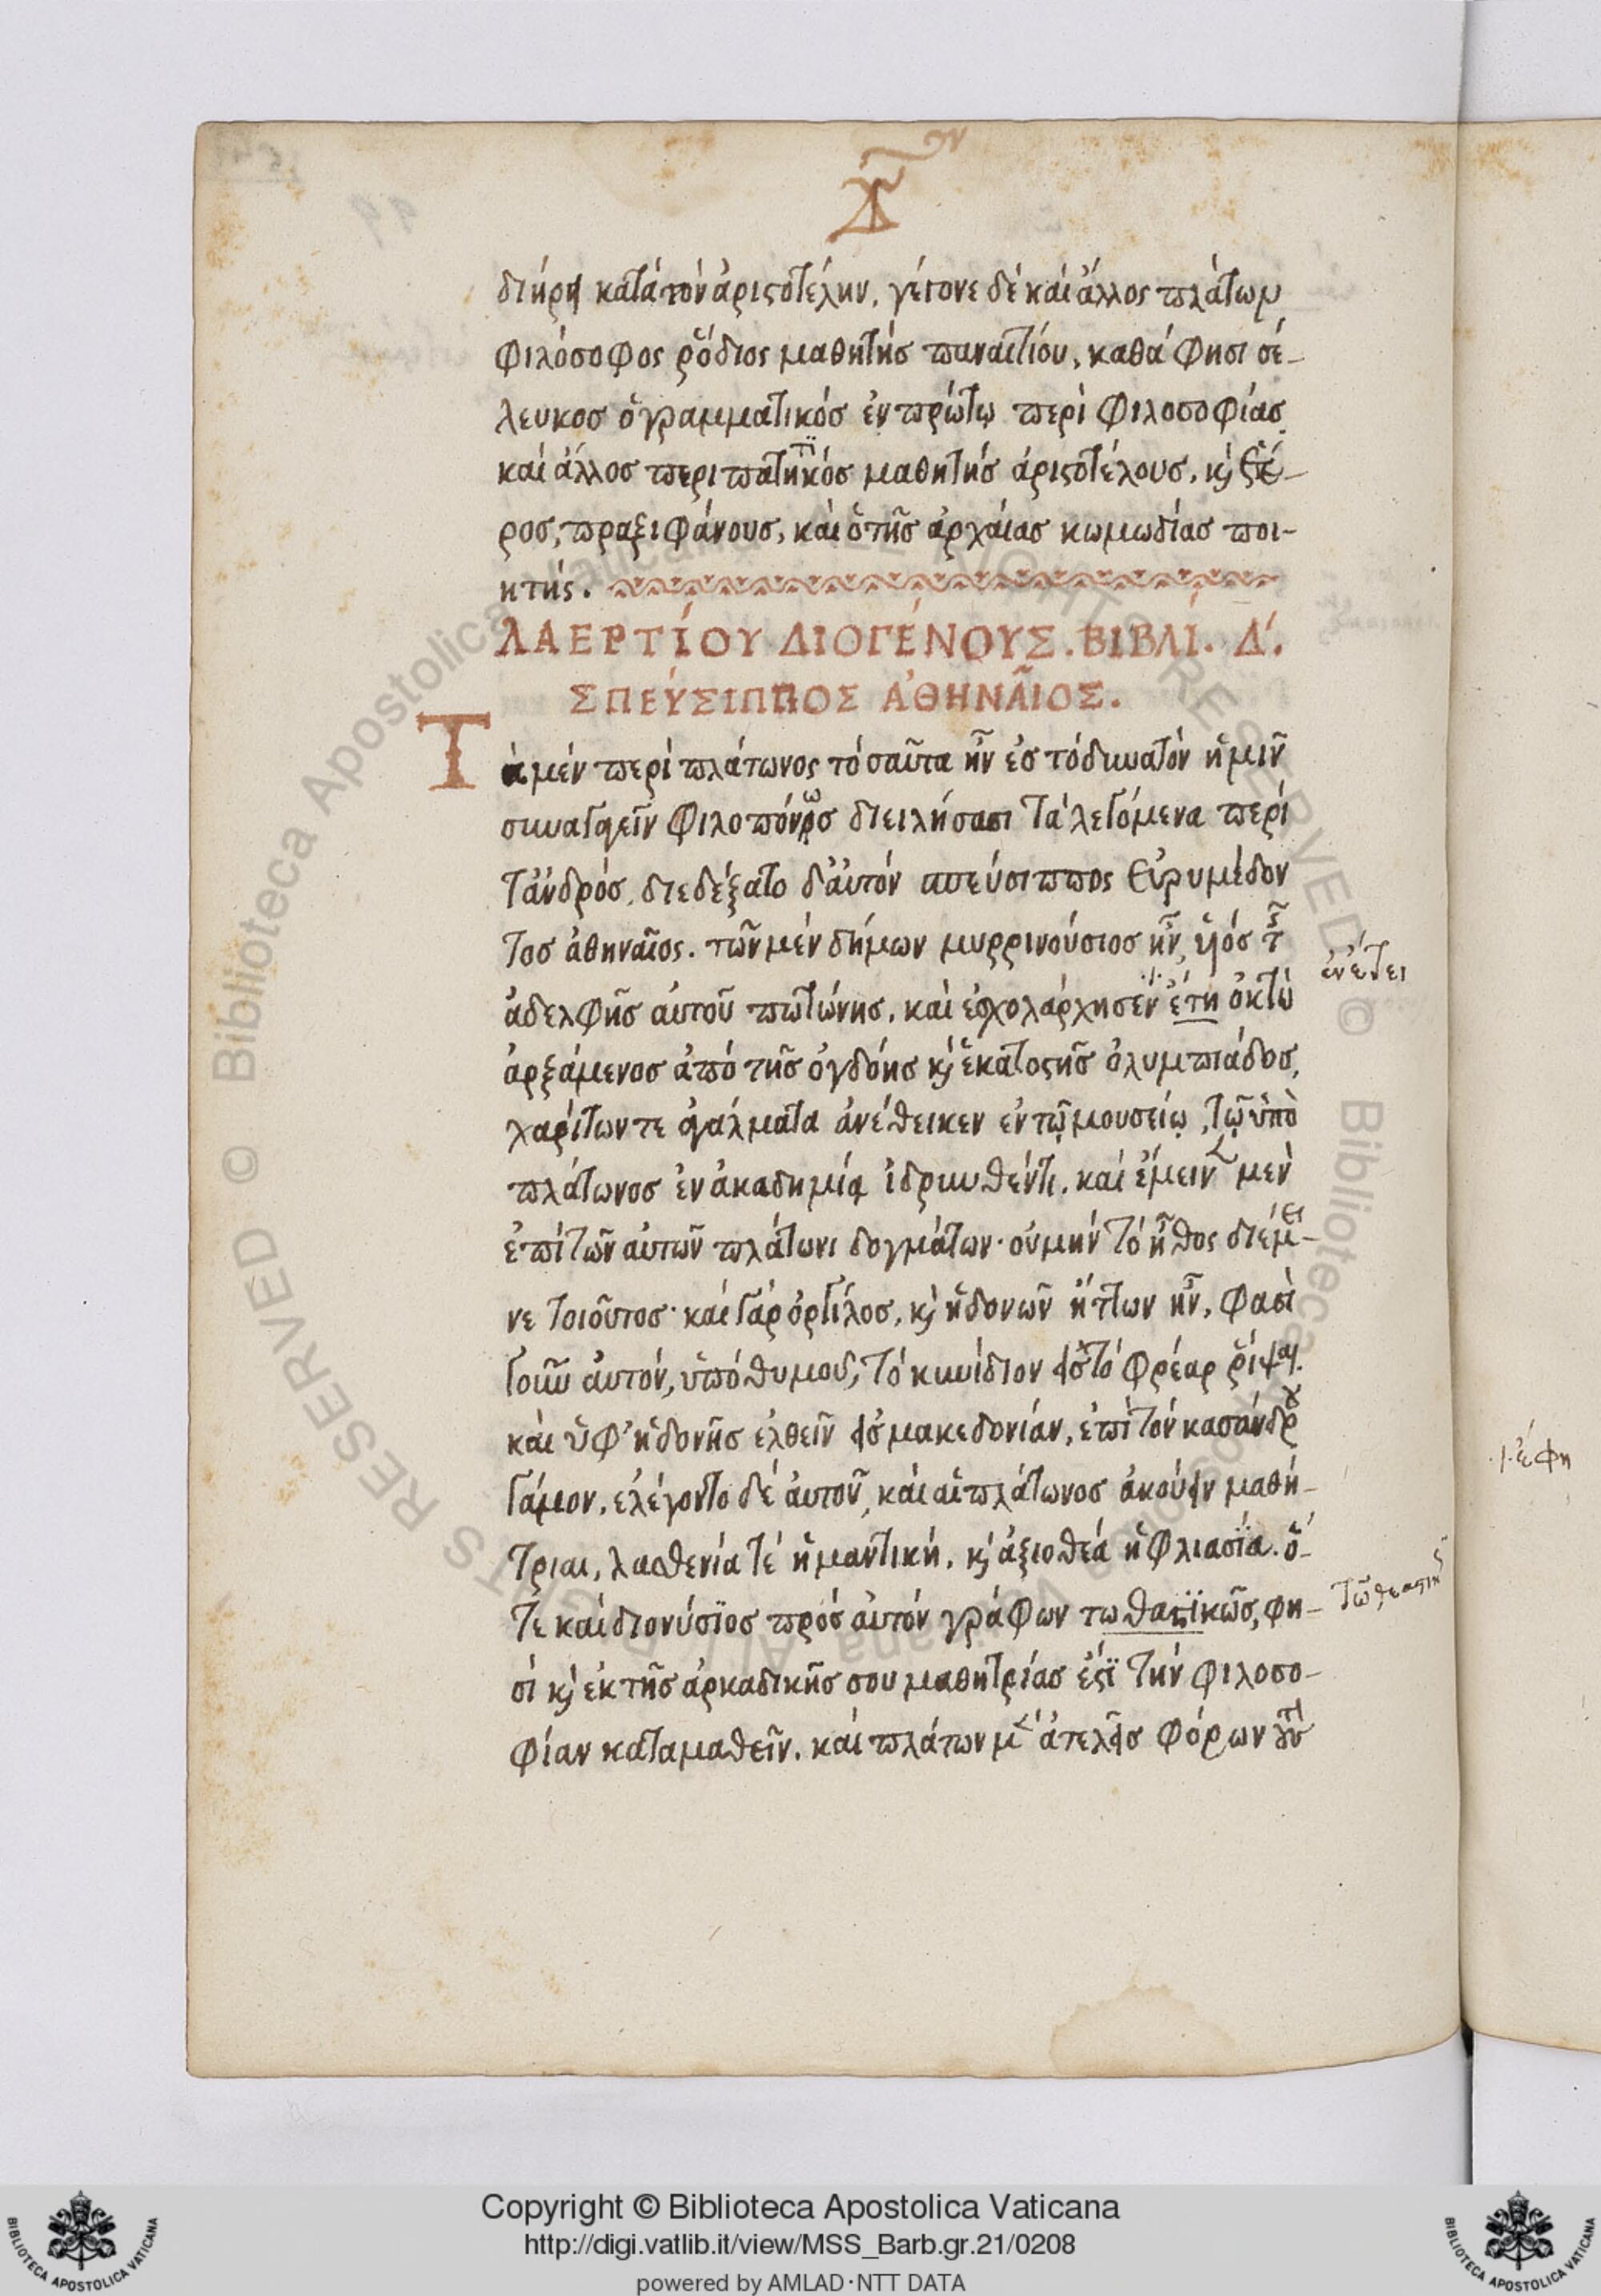 διήρει κατὰ τὸν ἀριστοτέλην. γέγονε δὲ καὶ ἄλλος πλάτων
φιλόσοφος ῥόδιος μαθητὴς παναιτίου, καθά φησι σέ-
λευκος ὁ γραμματικός ἐν πρώτῳ περὶ φιλοσοφίας
καὶ ἄλλος περιπατητικός μαθητὴς ἀριστοτέλους. κỳ ἕτε-
ρος, πραξιφάνους, καὶ ὁ τῆς ἀρχαίας κωμωδίας ποι-
ητής.
ΛΑΕΡΤΊΟΥ ΔΙΟΓΈΝΟΥΣ. ΒΙΒΛΊ. Δ'.
ΣΠΕΎΣΙΠΠΟΣ ἈΘΗΝΑ͂ΙΟΣ.
Τὰ μέν περὶ πλάτωνος τόσαῦτα ἦν ἐς τό δυνατὸν ἡμῖν
συναγαγεῖν φιλοπόνως διειλήσασι τὰ λεγόμενα περὶ
τἀνδρός. διεδέξατο δ' ἀυτόν σπεύσιππος Εὐρυμέδον
τος ἀθηναῖος. τῶν μέν δήμων μυρρινούσιος ἦν, ὑιός τῆς
ἀδελφῆς αὐτοῦ πωτώνης. καὶ ἐσχολάρχησεν ἔτη ὀκτὼ
ἐν ἔτει
ἀρξάμενος ἀπό τῆς ὀγδόης κỳ ἑκατοστῆς ὀλυμπιάδος,
χαρίτων τε ἀγάλματα ἀνέθεικεν ἐν τῷ μουσείῳ, τῷ ὑπὸ
πλάτωνος ἐν ἀκαδημίᾳ ἱδρυνθέντι. καὶ ἔμεινε μὲν
ἐπὶ τῶν αὐτῶν πλάτωνι δογμάτων· οὐ μήν τό ἦθος διέμει-
νε τοιοῦτος· καὶ γάρ ὀργίλος, κỳ ἡδονῶν ἥττων ἦν. φασὶ
γοῦν ἀυτόν, ὑπό θυμοῦ, τό κυνίδιον εἰς τό φρέαρ ῥίψαι.
καὶ ὑφ' ἡδονῆς ἐλθεῖν εἰς μακεδονίαν, ἐπὶ τόν κασάνδρου
γάμον. ἐλέγοντο δέ ἀυτοῦ, καὶ αἱ πλάτωνος ἀκούειν μαθή-
τριαι, λασθενία τέ ἡ μαντική. κỳ ἀξιοθεά ἡ φλιασΐα. ὅ-
τε καὶ διονύσϊος πρός ἀυτόν γράφων τωθαστϊκῶς, φη-
σί κỳ ἐκ τῆς ἀρκαδικῆς σου μαθητρίας ἐστϊ τήν φιλοσο-
φίαν καταμαθεῖν. καὶ πλάτων μὲν ἀτελεῖς φόρων τοὺς
.|. ἔφη